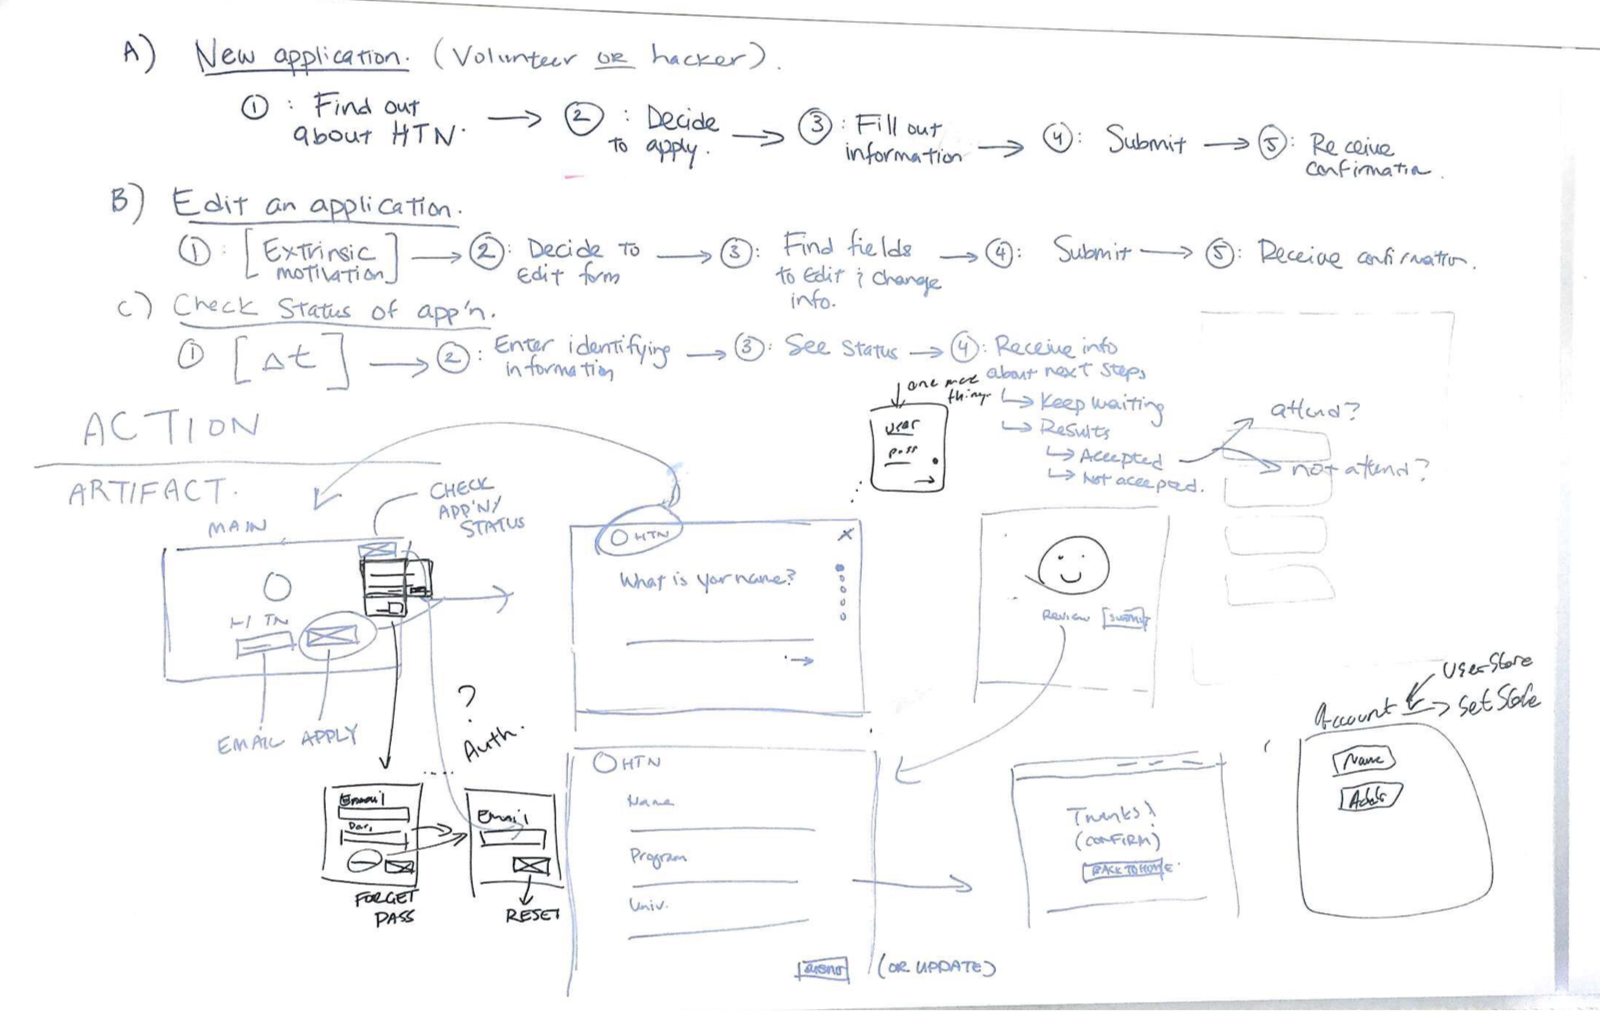 A) New application. (Volunteer OR hacker).
① : Find out about HTN. → ② : Decide to apply. → ③ : Fill out information → ④ : Submit → ⑤ : Receive confirmation.
B) Edit an application.
① : [Extrinsic motivation] → ② : Decide to Edit form → ③ : Find fields to Edit & change info. → ④ : Submit → ⑤ : Receive confirmation.
C) Check Status of app'n.
① [Δt] → ② : Enter identifying information → ③ : See status → ④ : Receive info about next steps
↳ Keep waiting
↳ Results
↳ Accepted
↳ Not accepted.
attend?
not attend?
one more thing.
user
pass
ACTION
ARTIFACT.
MAIN
CHECK APP'N/ STATUS
HTN
EMAIL APPLY
? Auth.
Email
FORGET PASS
Email
RESET
HTN
X
What is your name?
Review Submit
HTN
Name
Program
Univ.
(OR UPDATE)
Thanks!
(CONFIRM)
BACK TO HOME
UserStore
Account
Set State
Name